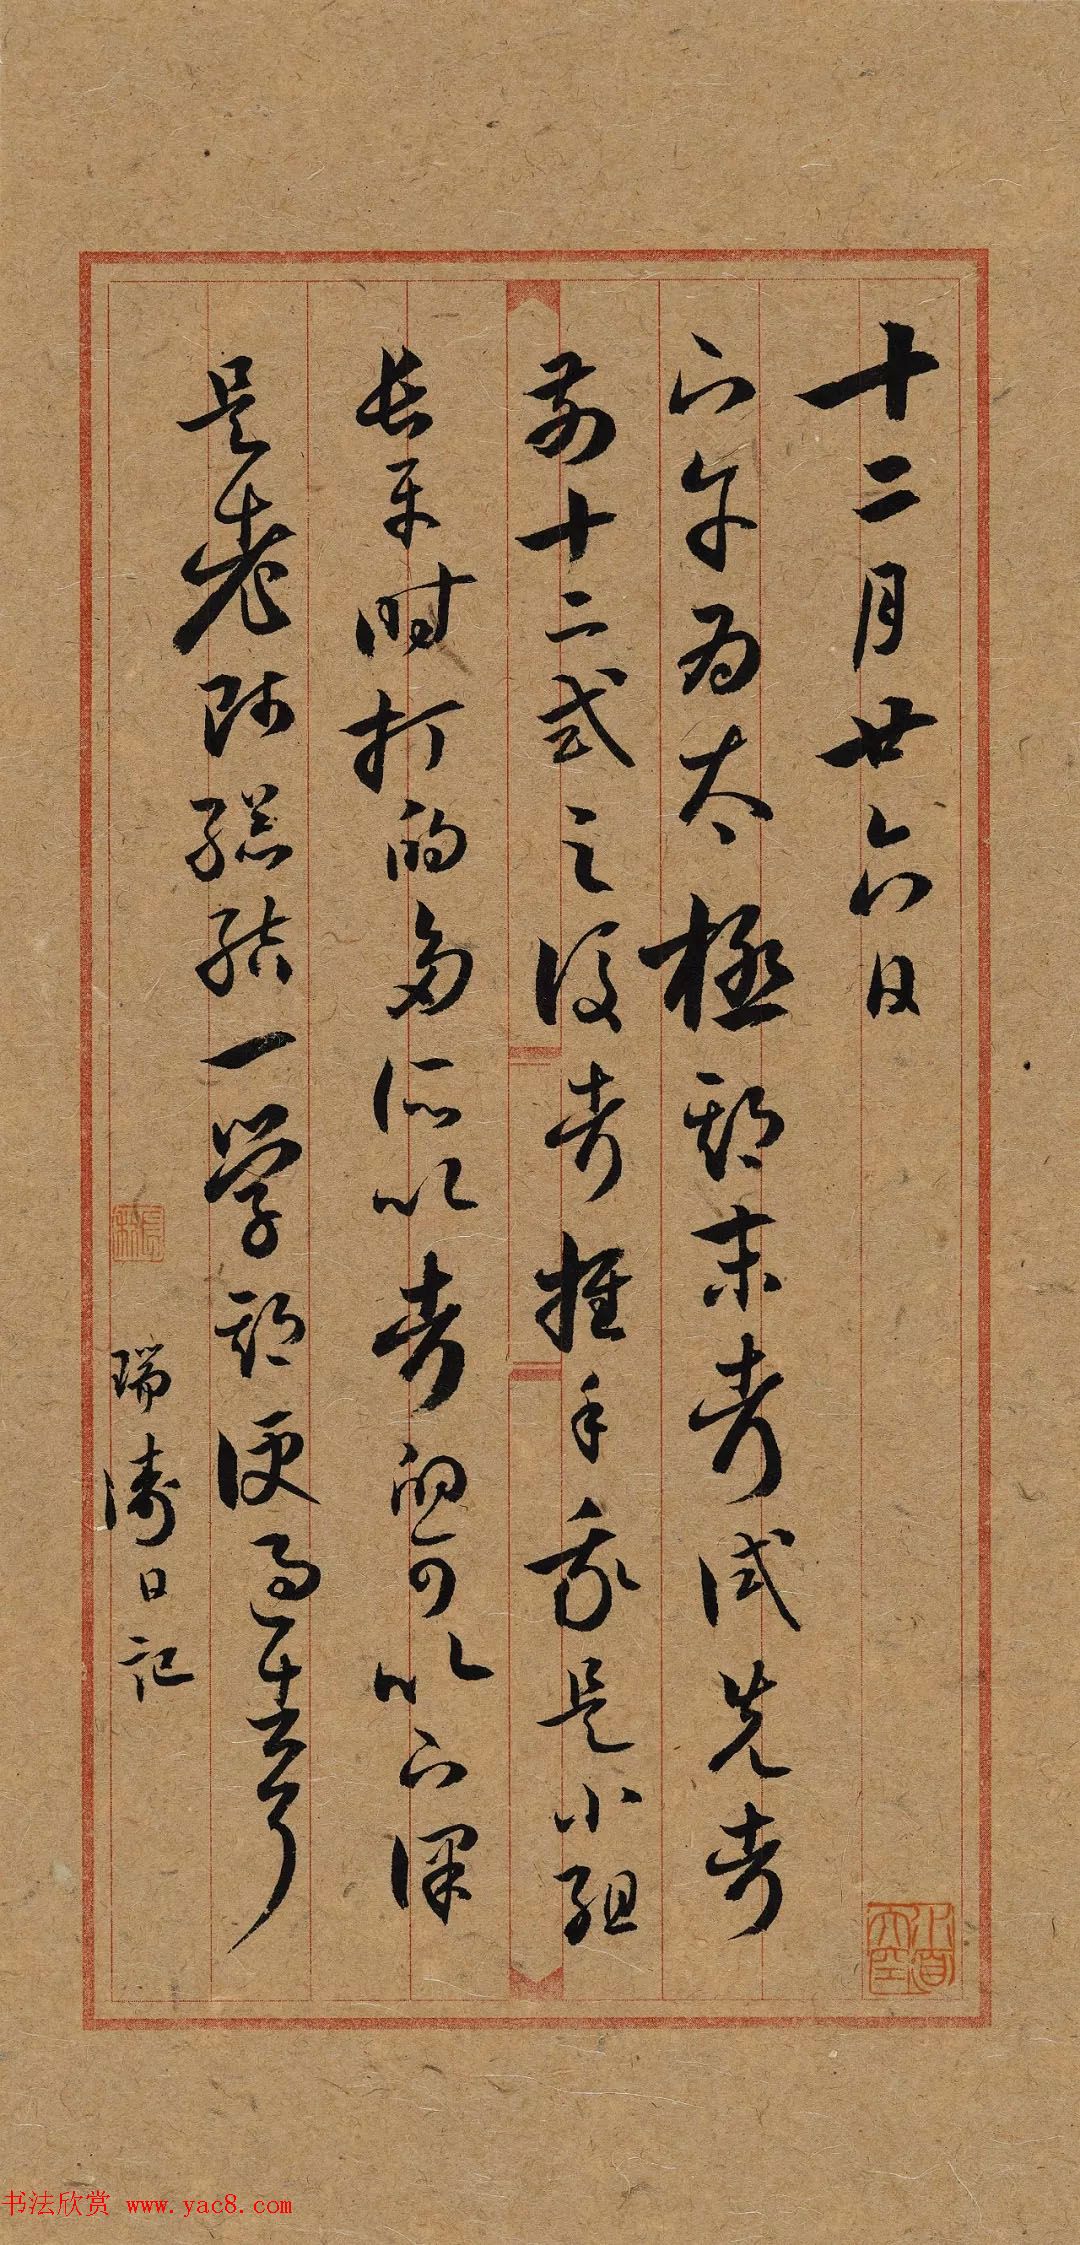 十二月廿六日
下午为太極期末考试先考
前十二式之後考推手我是小组
长平时打的多所以考的可以下课
是老师总结一学期便过去了
瑞涛日记
书法欣赏 www.yac8.com